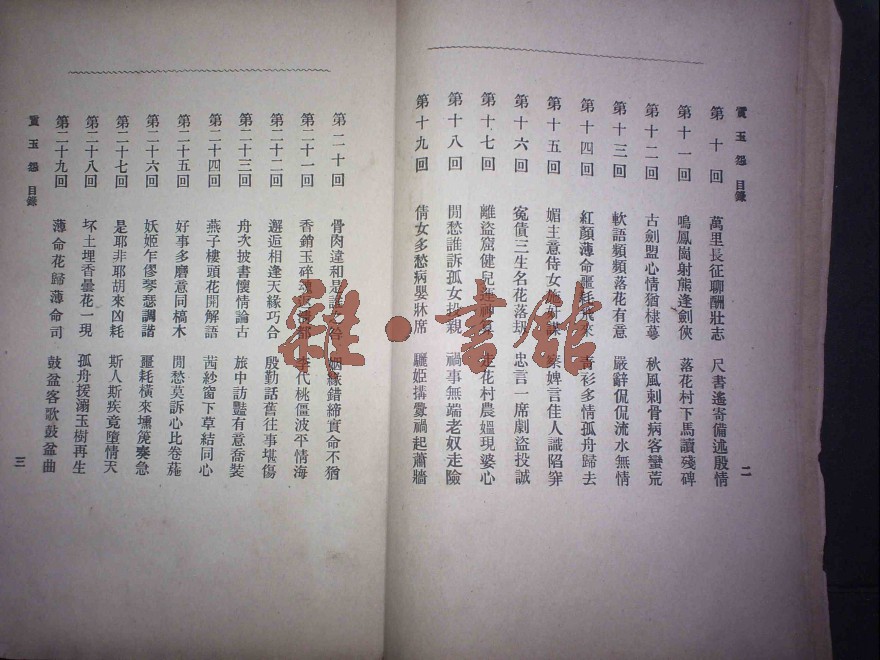 賈玉怨 目錄
二
第十回 萬里長征聊酬壯志 尺書遙寄備述殷情
第十一回 鳴鳳崗射熊逢劍俠 落花村下馬讀殘碑
第十二回 古劍盟心情猶棣萼 秋風刺骨病客蠻荒
第十三回 軟語頻頻落花有意 嚴辭侃侃流水無情
第十四回 紅顏薄命噩耗飛來 青衫多情孤舟歸去
第十五回 媚主意侍女施奸謀 婢言佳人識陷穽
第十六回 冤債三生名花落刼 忠言一席劇盜投誠
第十七回 離盜窟健兒 走花村農媼現婆心
第十八回 閒愁誰訴孤女投親 禍事無端老奴走險
第十九回 倩女多愁病嬰牀席 驪姬搆釁禍起蕭牆
第二十回 骨肉違和是誰之咎 姻緣錯締實命不猶
第二十一回 香銷玉碎 李代桃僵波平情海
第二十二回 邂逅相逢天緣巧合 殷勤話舊往事堪傷
第二十三回 舟次披書懷情論古 旅中訪豔有意喬裝
第二十四回 燕子樓頭花開解語 茜紗窗下草結同心
第二十五回 好事多磨意同槁木 閒愁莫訴心比卷葹
第二十六回 妖姬乍僇琴瑟調諧 噩耗橫來壎篪奏急
第二十七回 是耶非耶胡來凶耗 斯人斯疾竟墮情天
第二十八回 坏土埋香曇花一現 孤舟援溺玉樹再生
第二十九回 薄命花歸薄命司 鼓盆客歌鼓盆曲
賈玉怨 目錄
三
雜·書館